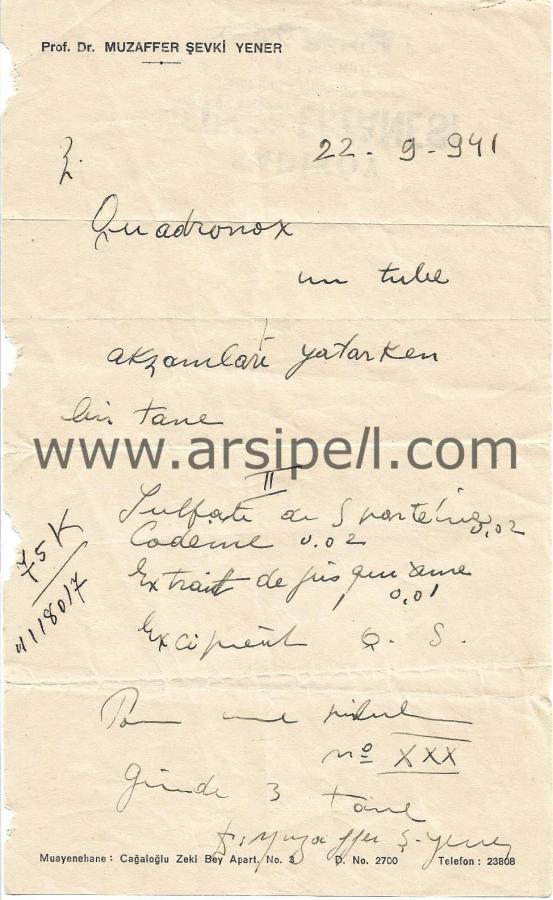 Prof. Dr. MUZAFFER ŞEVKİ YENER
22-9-941
Quadronox
un tube
akşamları yatarken
bir tane
www.arsipell.com
II
Sulfate de Spartéine 0,02
Codeine 0.02
Extrait de jusquiame
0,01
Excipient Q. S.
75K
1118017
Pour une pilule
nº XXX
Günde 3 tane
Dr. Muzaffer Ş. Yener
Muayenehane : Cağaloğlu Zeki Bey Apart. No. 3 D. No. 2700 Telefon : 23808